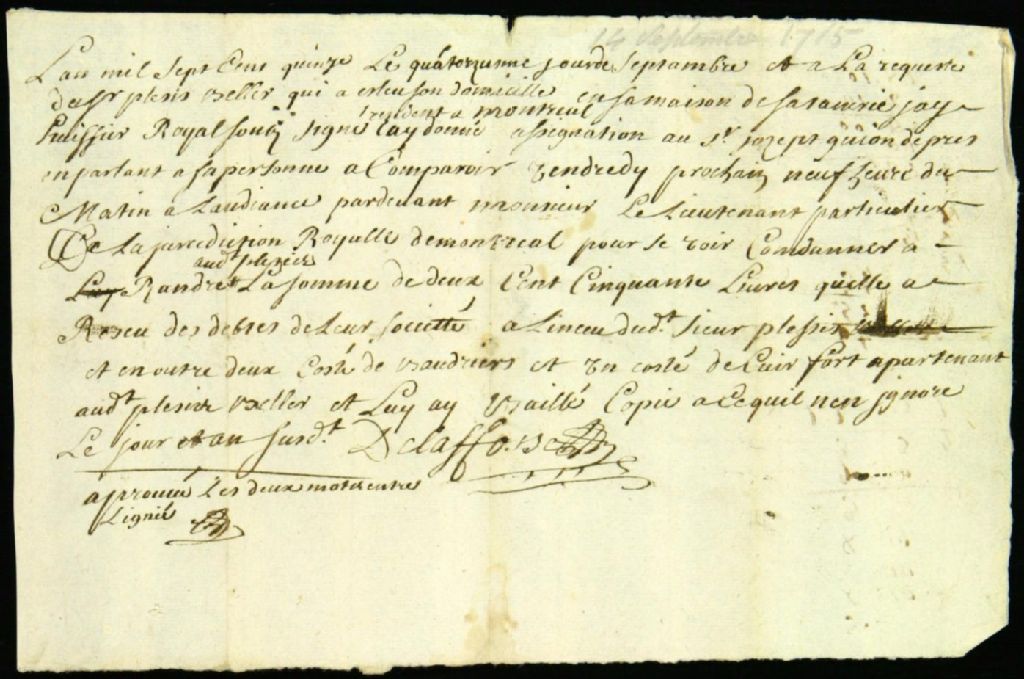 14 Septembre 1715
L'an mil Sept Cent quinze Le quatorzieme jour de Septambre et a La requeste
du sr plesis Beller qui a esleu son domicille en sa maison de sa tanrie jay
resident a montreal
huissier Royal soubz signé Cay donné assignation au sr. jozept guion depres
en parlant a sa personne a Comparoir Vendredy prochain neuf heure du
Matin a Laudiance pardevant monsieur Le Lieutenant particulier
De La jurediction Royalle de montreal pour se voir Condanner a
aud.t plezis
Randre La somme de deux Cent Cinquante Livres quille a
Reseu des debtes de Leur societté a Linceu dud.t sieur plessis
et en outre deux Costé de Baudriers et Un costé de Cuir fort apartenant
aud.t plesis Beller et Luy ay Baillé Copie a Ce quil nen jgnore
Le jour et an susd.t Delaffosse
aprouvé Les deux mots entre
Ligné